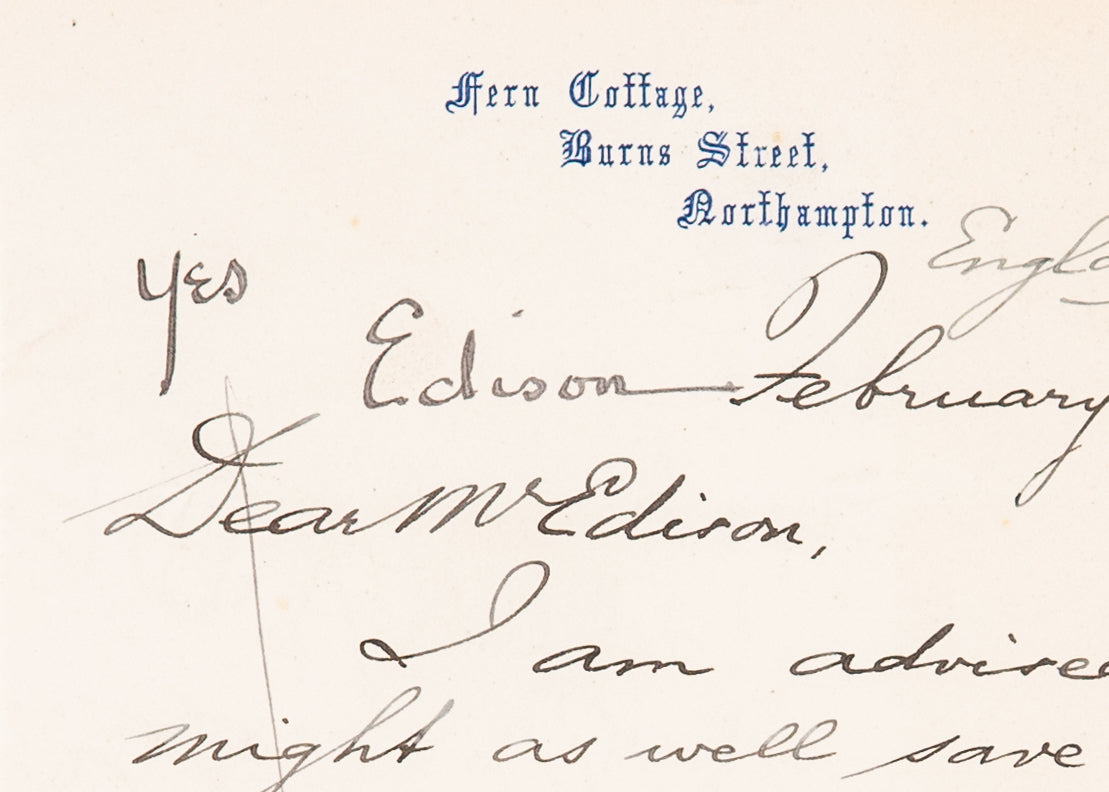 Fern Cottage,
Burns Street,
Northampton.
Engla
yes
Edison
February
Dear Mr Edison,
I am advised
might as well save